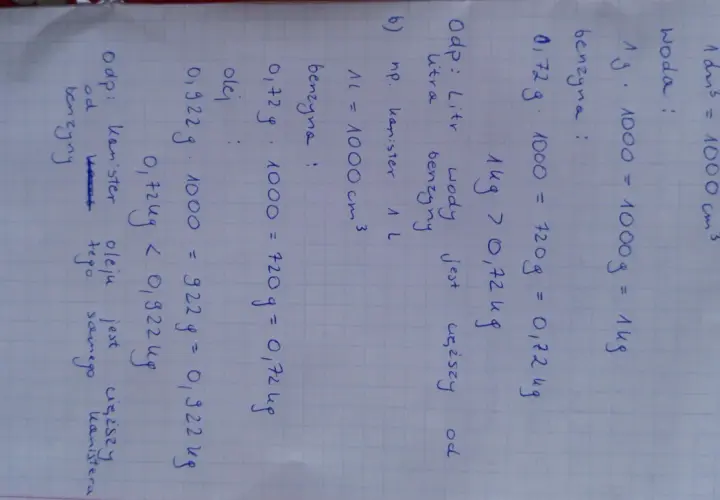 1 dm³ = 1000 cm³
Woda :
1g · 1000 = 1000g = 1kg
benzyna :
0,72 g · 1000 = 720g = 0,72kg
1kg > 0,72kg
Odp: Litr wody jest cięższy od
litra benzyny
b) np. kanister 1 L
1L = 1000 cm³
benzyna :
0,72 g · 1000 = 720 g = 0,72kg
olej :
0,922g · 1000 = 922g = 0,922kg
0,72kg < 0,922kg
Odp: kanister oleju jest cięższy
od tego samego kanistera
benzyny